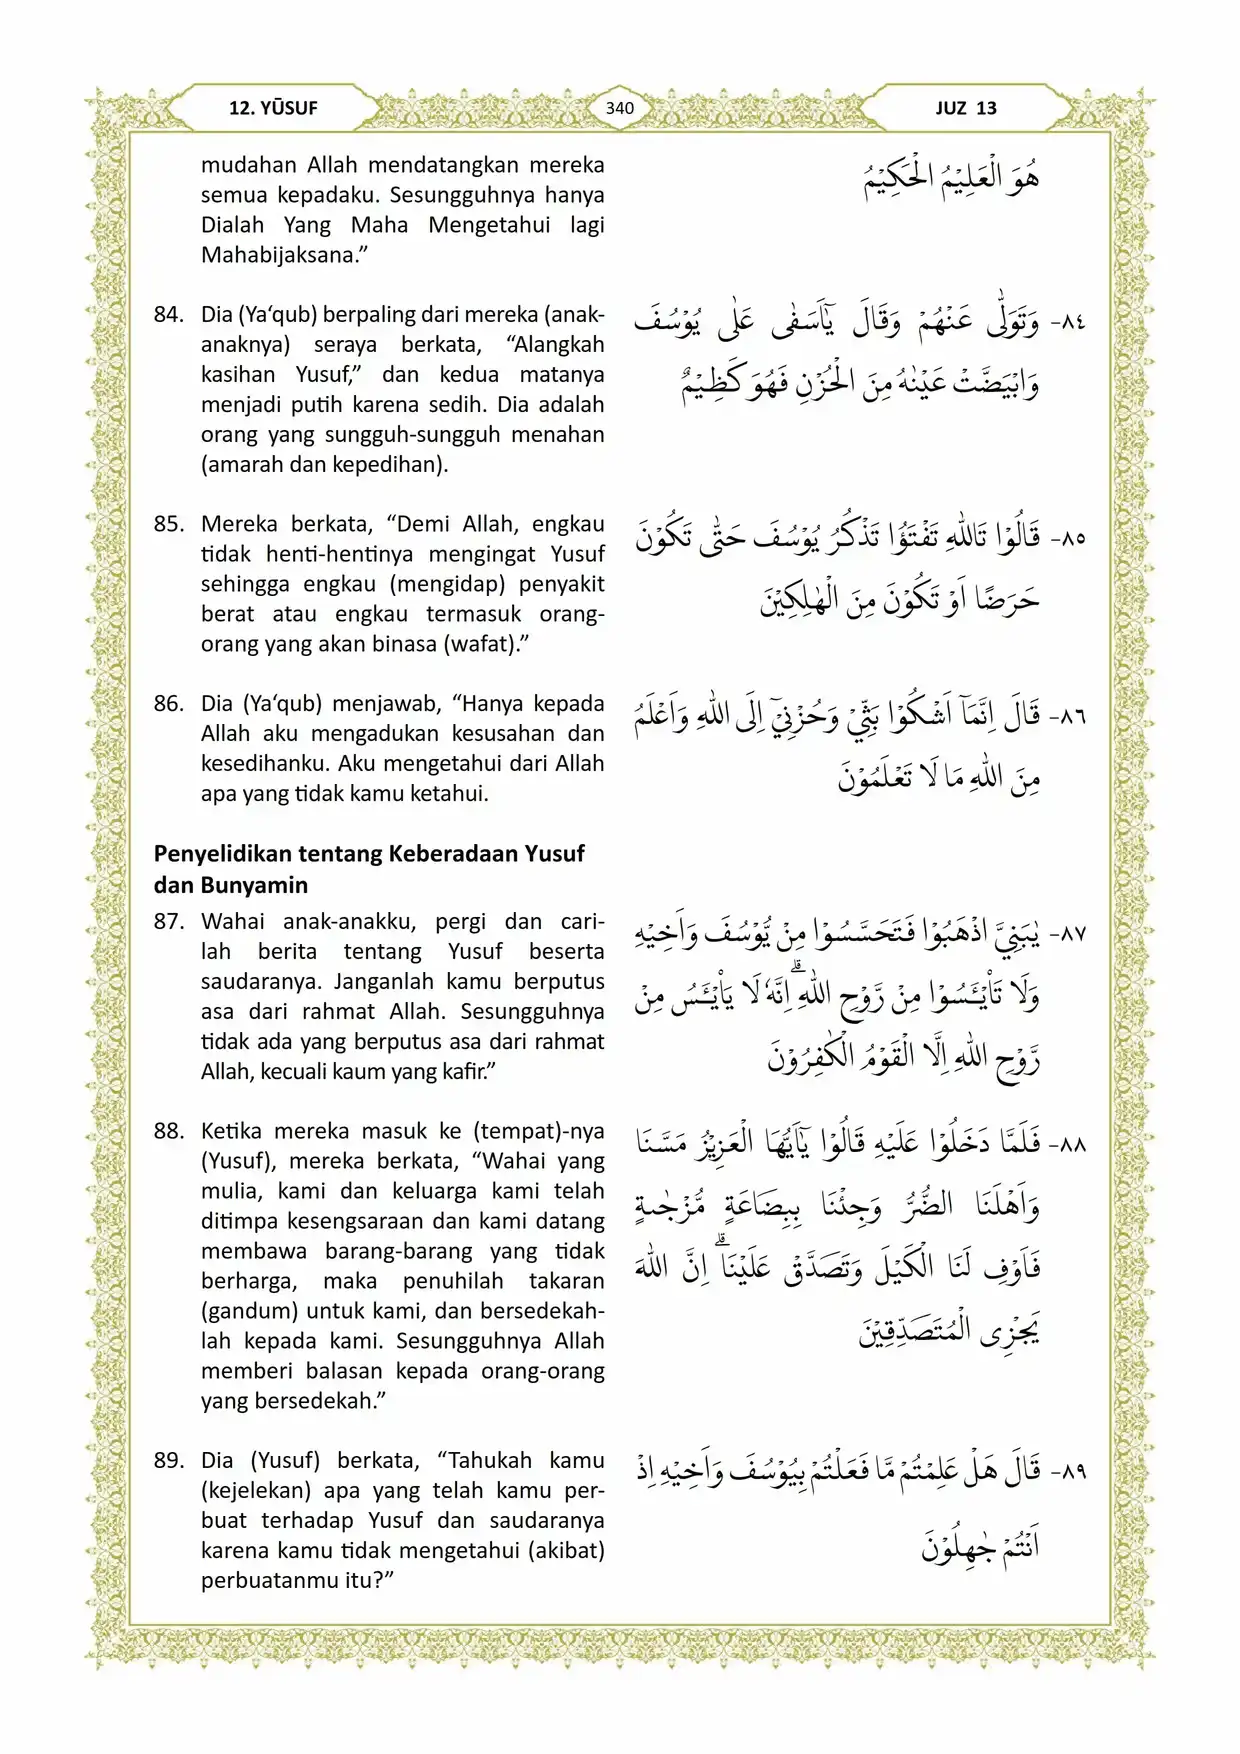 12. YŪSUF
340
JUZ 13
mudahan Allah mendatangkan mereka
semua kepadaku. Sesungguhnya hanya
Dialah Yang Maha Mengetahui lagi
Mahabijaksana.”
هُوَ الْعَلِيْمُ الْحَكِيْمُ
84. Dia (Ya‘qub) berpaling dari mereka (anak-
anaknya) seraya berkata, “Alangkah
kasihan Yusuf,” dan kedua matanya
menjadi putih karena sedih. Dia adalah
orang yang sungguh-sungguh menahan
(amarah dan kepedihan).
٨٤- وَتَوَلّٰى عَنْهُمْ وَقَالَ يٰٓاَسَفٰى عَلٰى يُوْسُفَ
وَابْيَضَّتْ عَيْنٰهُ مِنَ الْحُزْنِ فَهُوَ كَظِيْمٌ
85. Mereka berkata, “Demi Allah, engkau
tidak henti-hentinya mengingat Yusuf
sehingga engkau (mengidap) penyakit
berat atau engkau termasuk orang-
orang yang akan binasa (wafat).”
٨٥- قَالُوْا تَاللّٰهِ تَفْتَؤُا تَذْكُرُ يُوْسُفَ حَتّٰى تَكُوْنَ
حَرَضًا اَوْ تَكُوْنَ مِنَ الْهٰلِكِيْنَ
86. Dia (Ya‘qub) menjawab, “Hanya kepada
Allah aku mengadukan kesusahan dan
kesedihanku. Aku mengetahui dari Allah
apa yang tidak kamu ketahui.
٨٦- قَالَ اِنَّمَآ اَشْكُوْا بَثِّيْ وَحُزْنِيْٓ اِلَى اللّٰهِ وَاَعْلَمُ
مِنَ اللّٰهِ مَا لَا تَعْلَمُوْنَ
Penyelidikan tentang Keberadaan Yusuf
dan Bunyamin
87. Wahai anak-anakku, pergi dan cari-
lah berita tentang Yusuf beserta
saudaranya. Janganlah kamu berputus
asa dari rahmat Allah. Sesungguhnya
tidak ada yang berputus asa dari rahmat
Allah, kecuali kaum yang kafir.”
٨٧- يٰبَنِيَّ اذْهَبُوْا فَتَحَسَّسُوْا مِنْ يُّوْسُفَ وَاَخِيْهِ
وَلَا تَا۟يْـَٔسُوْا مِنْ رَّوْحِ اللّٰهِ ۗاِنَّهٗ لَا يَا۟يْـَٔسُ مِنْ
رَّوْحِ اللّٰهِ اِلَّا الْقَوْمُ الْكٰفِرُوْنَ
88. Ketika mereka masuk ke (tempat)-nya
(Yusuf), mereka berkata, “Wahai yang
mulia, kami dan keluarga kami telah
ditimpa kesengsaraan dan kami datang
membawa barang-barang yang tidak
berharga, maka penuhilah takaran
(gandum) untuk kami, dan bersedekah-
lah kepada kami. Sesungguhnya Allah
memberi balasan kepada orang-orang
yang bersedekah.”
٨٨- فَلَمَّا دَخَلُوْا عَلَيْهِ قَالُوْا يٰٓاَيُّهَا الْعَزِيْزُ مَسَّنَا
وَاَهْلَنَا الضُّرُّ وَجِئْنَا بِبِضَاعَةٍ مُّزْجٰىةٍ
فَاَوْفِ لَنَا الْكَيْلَ وَتَصَدَّقْ عَلَيْنَا ۗاِنَّ اللّٰهَ
يَجْزِى الْمُتَصَدِّقِيْنَ
89. Dia (Yusuf) berkata, “Tahukah kamu
(kejelekan) apa yang telah kamu per-
buat terhadap Yusuf dan saudaranya
karena kamu tidak mengetahui (akibat)
perbuatanmu itu?”
٨٩- قَالَ هَلْ عَلِمْتُمْ مَّا فَعَلْتُمْ بِيُوْسُفَ وَاَخِيْهِ اِذْ
اَنْتُمْ جٰهِلُوْنَ